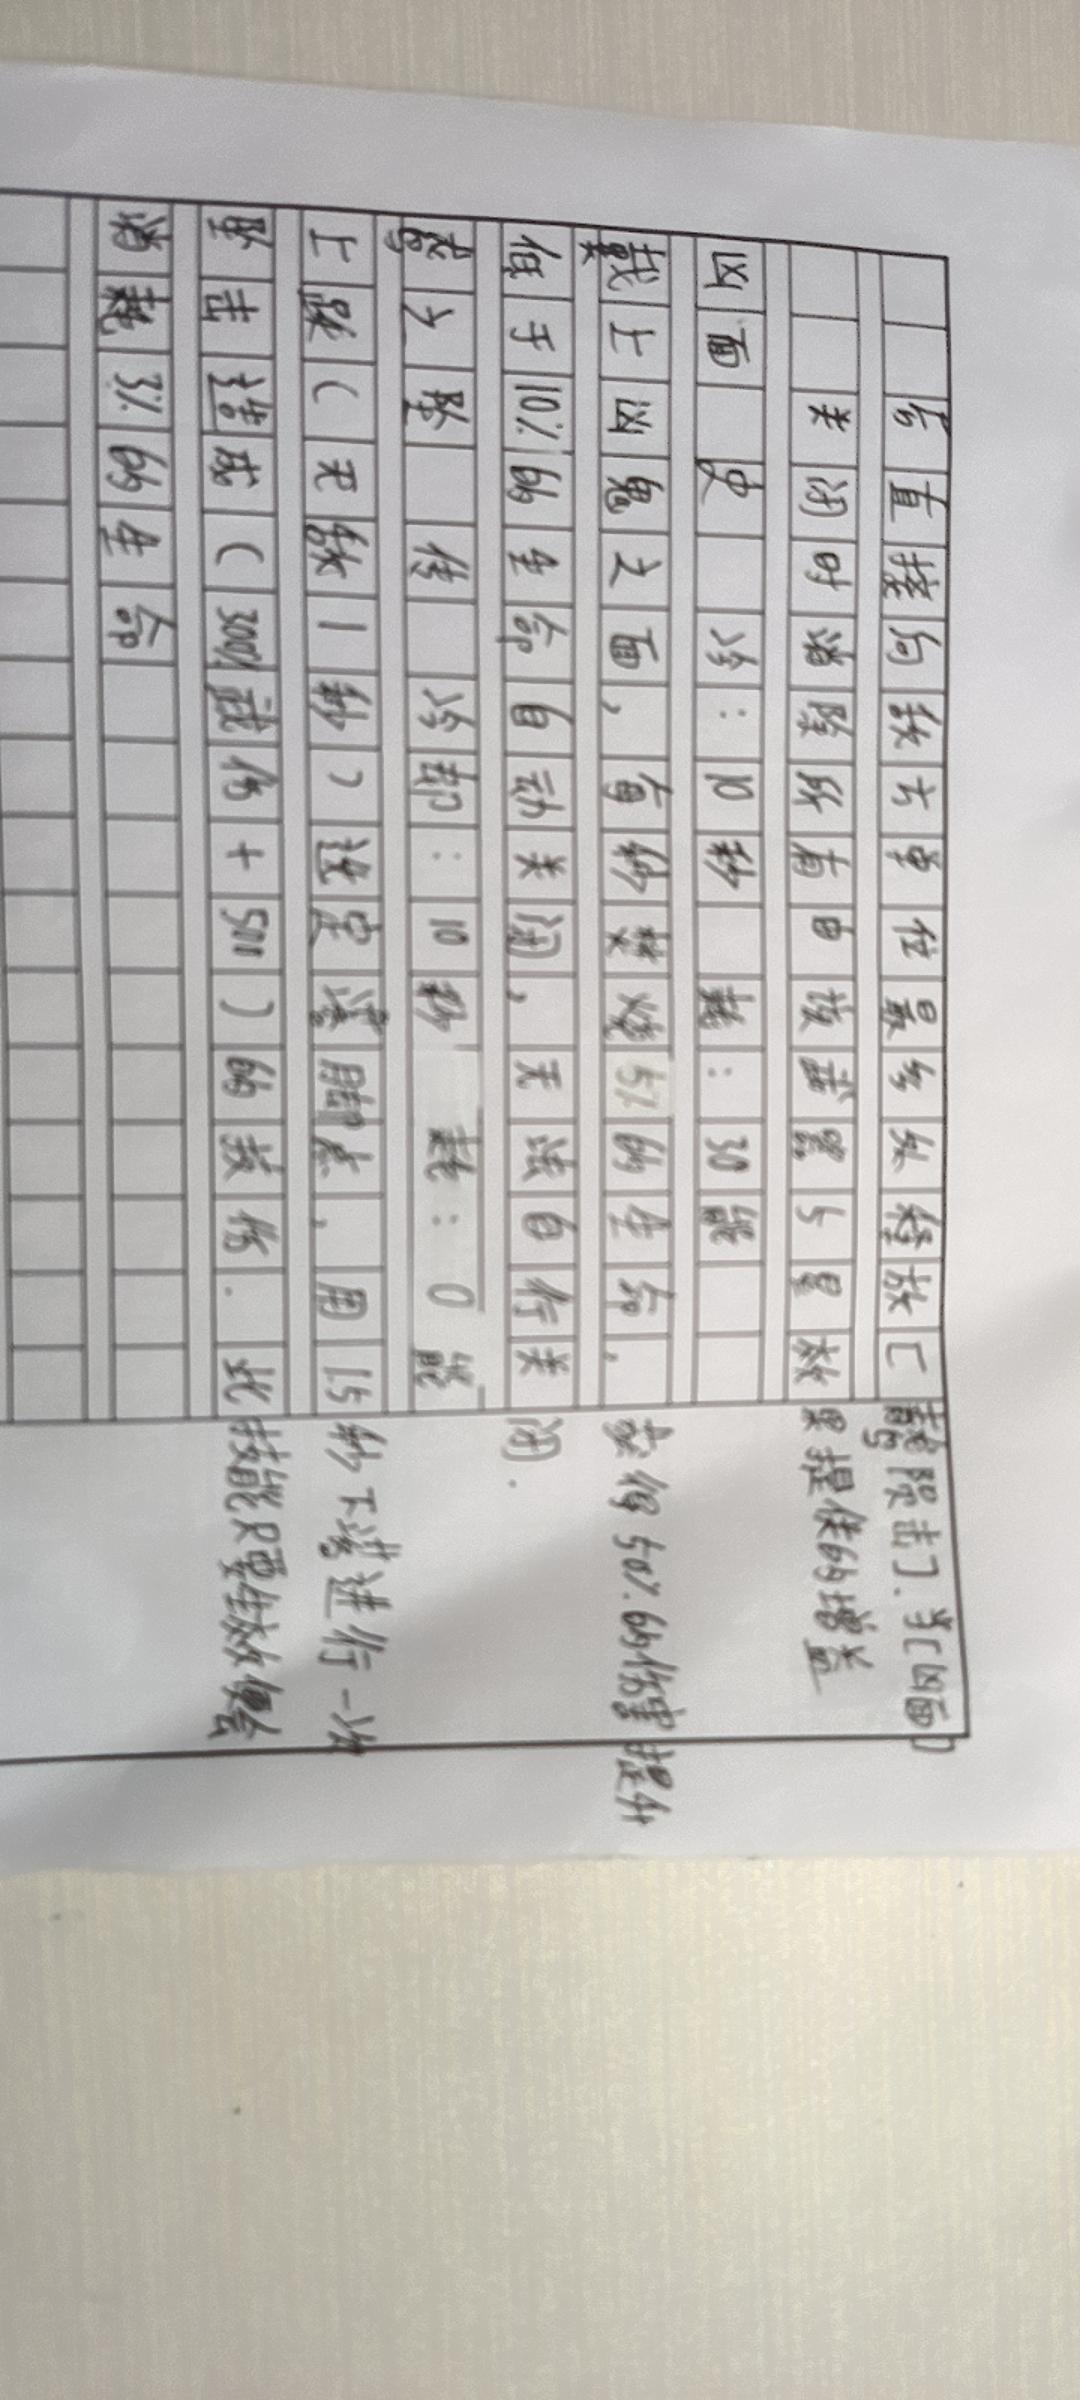 后直接向敌方单位最多处释放[鸾陨击].当[凶面]
关闭时消除所有由战武器与星效果提供的增益
凶面 史 冷:10秒 耗:30能
戴上凶鬼之面,每秒焚烧5%的生命.获得50%的伤害提升
低于10%的生命自动关闭,无法自行关闭.
鸾之坠 传 冷却:10秒 耗:0能
上跃(无敌1秒)选定落脚点,用1.5秒下落进行一次
坠击造成(300%武伤+500)的技伤.此技能只要生效便会
消耗3%的生命